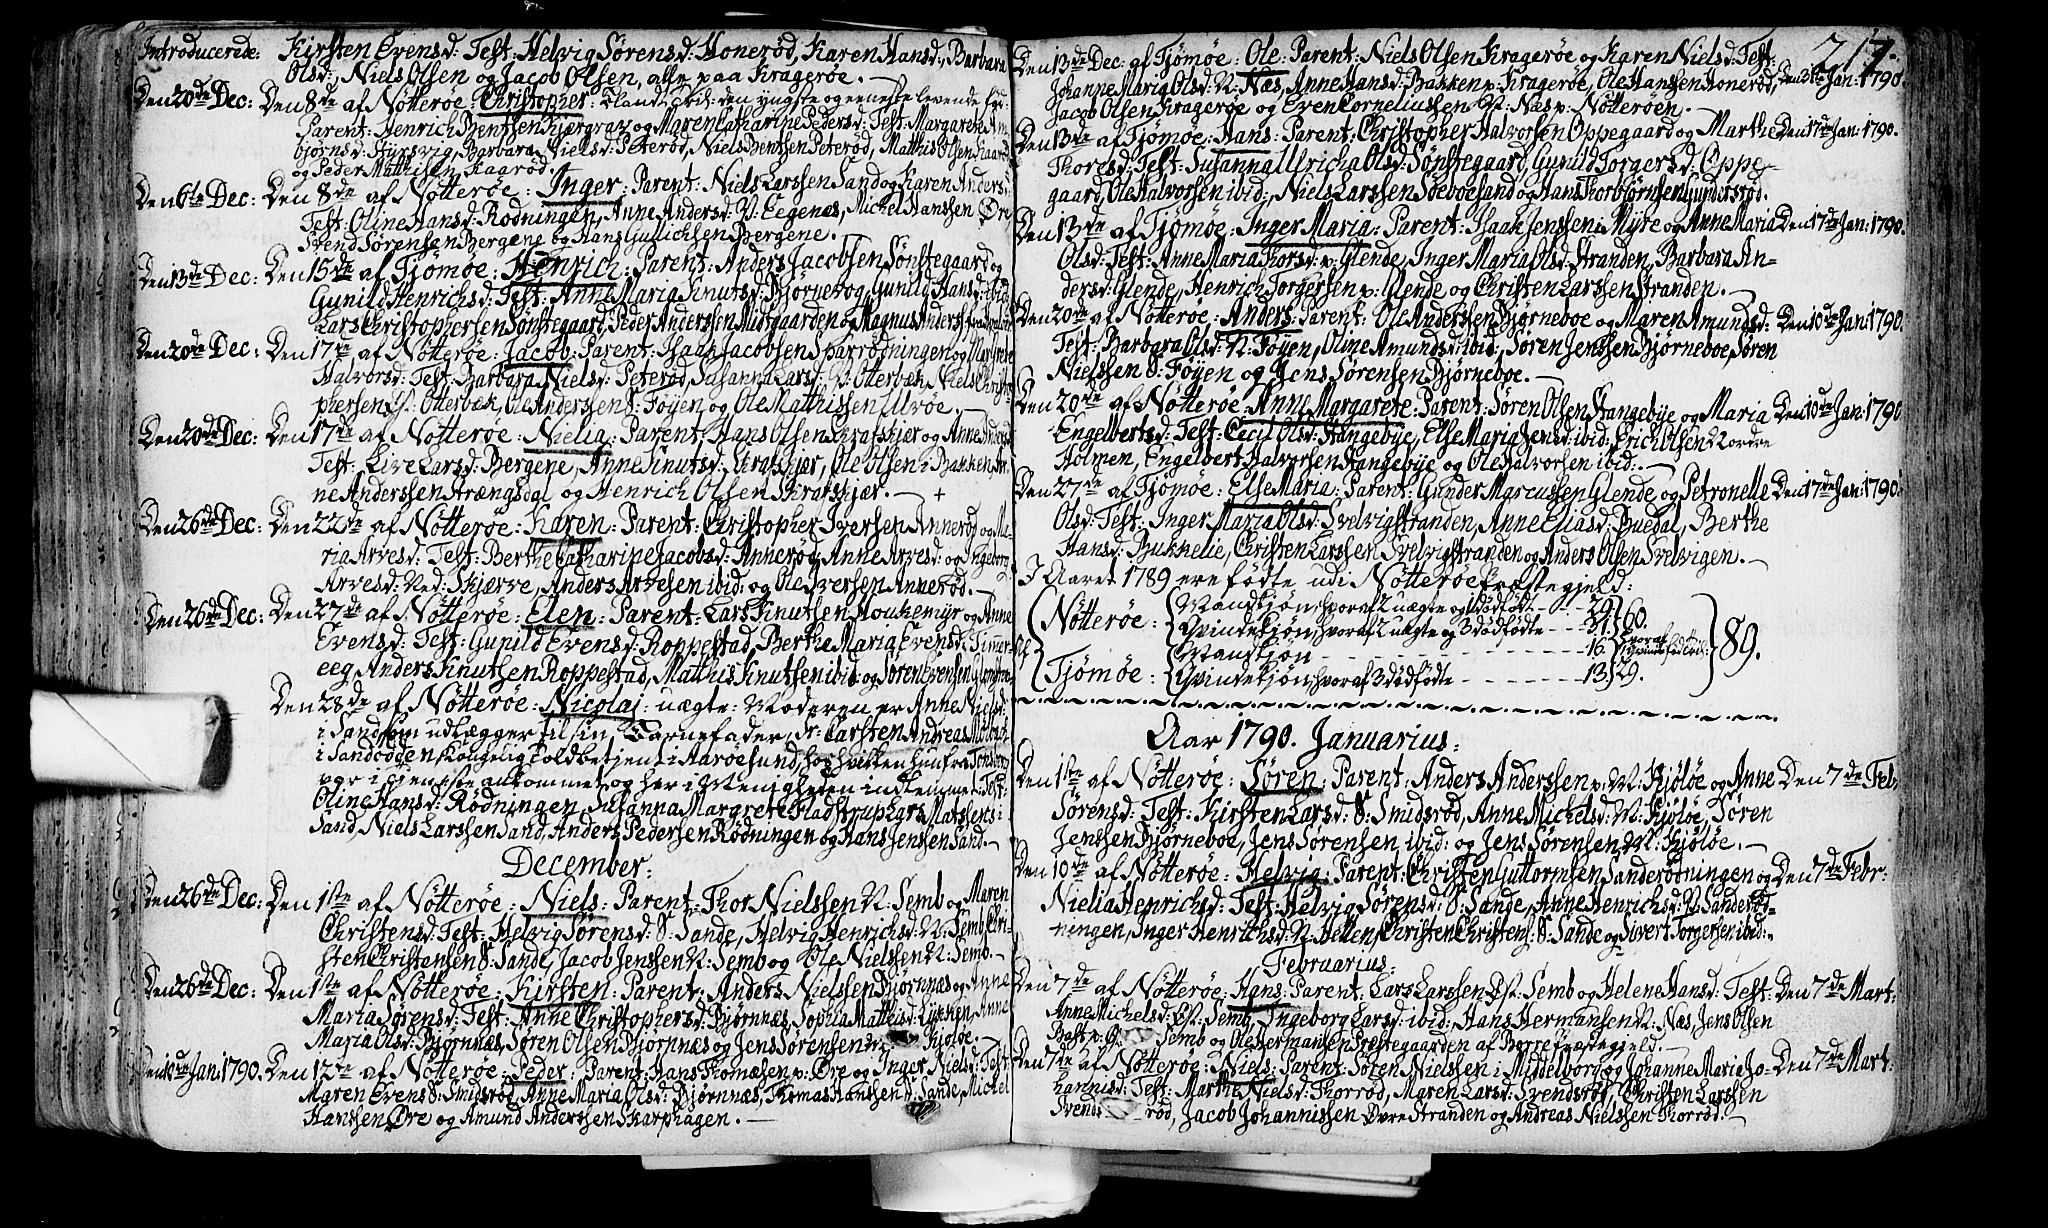 Introducerede: Kirsten Evensd: Test: Helvig Sørensd: Honerød, Karen Hansd:, Barbara
Olsd:, Niels Olsen og Jacob Olsen, alle paa Kragerøe. —
Den 20de Dec: Den 8de af Nötterøe: Christopher: den yngste og eeneste levende
Parent: Henrich Bentsen og Maren Catharine Pedersd: Test: Margarete Am-
björnsd: Barbara Nielsd: Peterød, Niels Bentsen Peterød, Mathis Olsen Kaarød
og Peder Mathisen Kaarød.
Den 6te Dec: Den 8de af Nötterøe: Inger: Parent: Niels Larssen Sand og Karen Andersd:
Test: Oline Hansd: Rödningen, Anne Andersd: N. Eegenæs, Michel Hanssen Øre,
Svend Sörensen Bergene og Hans Bergene. —
Den 13de Dec: Den 15de af Tjömøe: Henrich: Parent: Anders Jacobsen Sönstegaard og
Gunild Henrichsd: Test: Anne Maria Knutsd: Gunild Hansd: ibid:
Lars Christophersen Sönstegaard, Peder Anderssen Midgaarden og Magnus Anders:
Den 20de Dec: Den 17de af Nötterøe: Jacob: Parent: Isaak Jacobsen og Marthe
Halvorsd: Test: Barbara Nielsd: Peterød, Susanna Larsd: N: Otterbæk, Niels Christo-
phersen N: Otterbæk, Ole Anderssen S: Föyen og Ole Mathissen Ulvöe.
Den 20de Dec: Den 17de af Nötterøe: Nielia: Parent: Hans Olsen og Anne
Test: Live Larsd: Bergene, Anne Knutsd: Ole Olsen Bakken, Ar-
ne Anderssen Strængsdal og Henrich Olsen — +
Den 26de Dec: Den 22de af Nötterøe: Karen: Parent: Christopher Iversen Annerød og Ma-
ria Arvesd: Test: Berthe Catharine Jacobsd: Annerød, Anne Arvesd: og Ingeborg
Arvesd: Ned: Skjærve, Anders Arvesen ibid: og Ole Iversen Annerød. —
Den 26de Dec: Den 27de af Nötterøe: Elen: Parent: Lars Knutsen Houkemyr og Anne
Evensd: Test: Gunild Evensd: Roppestad, Berthe Maria Evensd: Timmer-
eeg, Anders Knutsen Roppestad, Mathis Knutsen ibid: og Sören Evensen
Den 28de af Nötterøe: Nicolai: uægte: Moderen er Anne Nielsd:
i Sand, som udlægger til sin Barnefader, Sr: Carsten Andreas
i Kongelig Toldbetjent i Aaröesund, hos hvilken hun fra
var i tjeneste ankommet og her i Menigheden indkommet: Test:
Oline Hansd: Rödningen, Susanna Margrete Lars Matssens i
Sand, Niels Larssen Sand, Anders Pedersen Rödningen og Hans Jenssen Sand. —
December:
Den 26de Dec: Den 1ste af Nötterøe: Niels: Parent: Thor Nielssen N: Semb og Maren
Christensd: Test: Helvig Sörensd: S: Sande, Helvig Henrichsd: N: Semb, Chri-
sten Christensen S: Sande, Jacob Jenssen N: Semb og Ole Nielssen N: Semb. —
Den 26de Dec: Den 1ste af Nötterøe: Kirsten: Parent: Anders Nielssen Björnnæs og Anne
Maria Sörensd: Test: Anne Christophersd: Björnnæs, Sophia Mathisd: Lykken, Anne
Maria Olsd: Björnnæs, Sören Olsen Björnnæs og Jens Sörensen N: Kjölöe. —
Den 10de Jan: 1790. Den 12te af Nötterøe: Peder: Parent: Hans Thomæsen p: Øre og Inger Nielsd: Test:
Maren Evens S: Smidsrød, Anne Maria Olsd: Björnnæs, Thomas Hanssen S: Sande, Michel
Hanssen Øre og Amund Anderssen Skarphagen. —
217.
Den 13de Dec: af Tjömøe: Ole: Parent: Niels Olsen Kragerøe og Karen Nielsd: Test:
Johanne Maria Olsd: N: Næs, Anne Hansd: Bakken p: Kragerøe, Ole Hansen Honerød, Jan: 1790.
Jacob Olsen Kragerøe og Even Corneliussen N: Næs p: Nötterøen. —
Den 13de af Tjömøe: Hans: Parent: Christopher Halvorsen Oppegaard og Marthe Den 17de Jan: 1790.
Thoresd: Test: Susanna Ulricha Olsd: Sönstegaard, Gunild Torgersd: Oppe-
gaard, Ole Halvorsen ibid:, Niels Larssen Soeboesand og Hans Thorbjörnsen Gundersrød.
Den 13de af Tjömøe: Inger Maria: Parent: Isaak Jenssen i Myre og Anne Maria Den 17de Jan: 1790.
Olsd: Test: Anne Maria Thorsd: p: Glende, Inger Maria Olsd: Stranden, Barbara An-
dersd: Glende, Henrich Torgersen p: Glende og Christen Larssen Stranden. —
Den 20de af Nötterøe: Anders: Parent: Ole Anderssen Björneboe og Maren Amundsd: Den 10de Jan: 1790.
Test: Barbara Olsd: N: Föyen, Oline Amundsd: ibid:, Sören Jenssen Björneboe, Sören
Nielssen S: Föyen og Jens Sörensen Björneboe. —
Den 20de af Nötterøe: Anne Margarete: Parent: Sören Olsen Stangebye og Maria Den 10de Jan: 1790
Engelbertsd: Test: Cecil Olsd: Stangebye, Else Maria Jensd: ibid: Erich Olsen Nordre
Holmen, Engelbert Halvorsen Stangebye og Ole Halvorsen ibid:. —
Den 27de af Tjömøe: Else Maria: Parent: Gunder Marcussen Glende og Petronelle Den 17de Jan: 1790.
Olsd: Test: Inger Maria Olsd: Svelvigstranden, Anne Eliasd: Buedal, Berthe
Hansd: Bukkelie, Christen Larssen Svelvigstranden og Anders Olsen Svelvigen. —
I Aaret 1789 ere födte udi Nötterøe Præstegjeld:
Af Nötterøe: Mandkjön, hvoraf 2 uægte og 1 dödfödt - - 29. 60.
Qvindekjön, hvoraf 2 uægte og 3 dödfödte - - - 31.
Tjömøe: Mandkjön - - - - 16. hvoraf 89.
Qvindekjön, hvoraf 3 dödfödte - - - - 13. 29.
Aar 1790. Januarius:
Den 1ste af Nötterøe: Sören: Parent: Anders Anderssen p: N: Kjölöe og Anne Den 7de Feb:
Sörensd: Test: Kirsten Larsd: S: Smidsrød, Anne Michelsd: N: Kjölöe, Sören
Jenssen Björneboe, Jens Sörensen ibid: og Jens Sörensen N: Kjölöe. —
Den 10de af Nötterøe: Helvig: Parent: Christen Guttormsen Sanderödningen og Den 7de Febr:
Nielia Henrichsd: Test: Helvig Sörensd: S: Sande, Anne Henrichsd: N: Sanderöd-
ningen, Inger Henrichsd: N: Hellen, Christen Christens: S: Sande og Sivert Torgersen ibid:.
Februarius:
Den 7de af Nötterøe: Hans: Parent: Lars Larssen Semb og Helene Hansd: Test: Den 7de Mart:
Anne Michelsd: Semb, Ingeborg Larsd: ibid:, Hans Hermansen N: Næs, Jens Olsen
Semb og Ole Hermansen Præstegaarden af Borre Præstegjeld. —
Den 7de af Nötterøe: Niels: Parent: Sören Nielssen i Middelborg og Johanne Maria Jo- Den 7de Mart:
hannisd: Test: Marthe Nielsd: Thorrød, Maren Larsd: Svendsrød, Christen Larssen
Svendsrød, Jacob Johannissen Øvre Stranden og Andreas Nielssen Thorrød. —